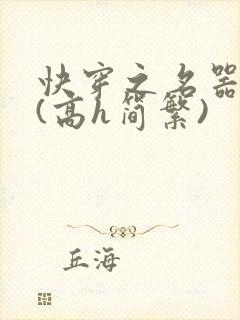 快穿之名器
(高h简繁)
丘海